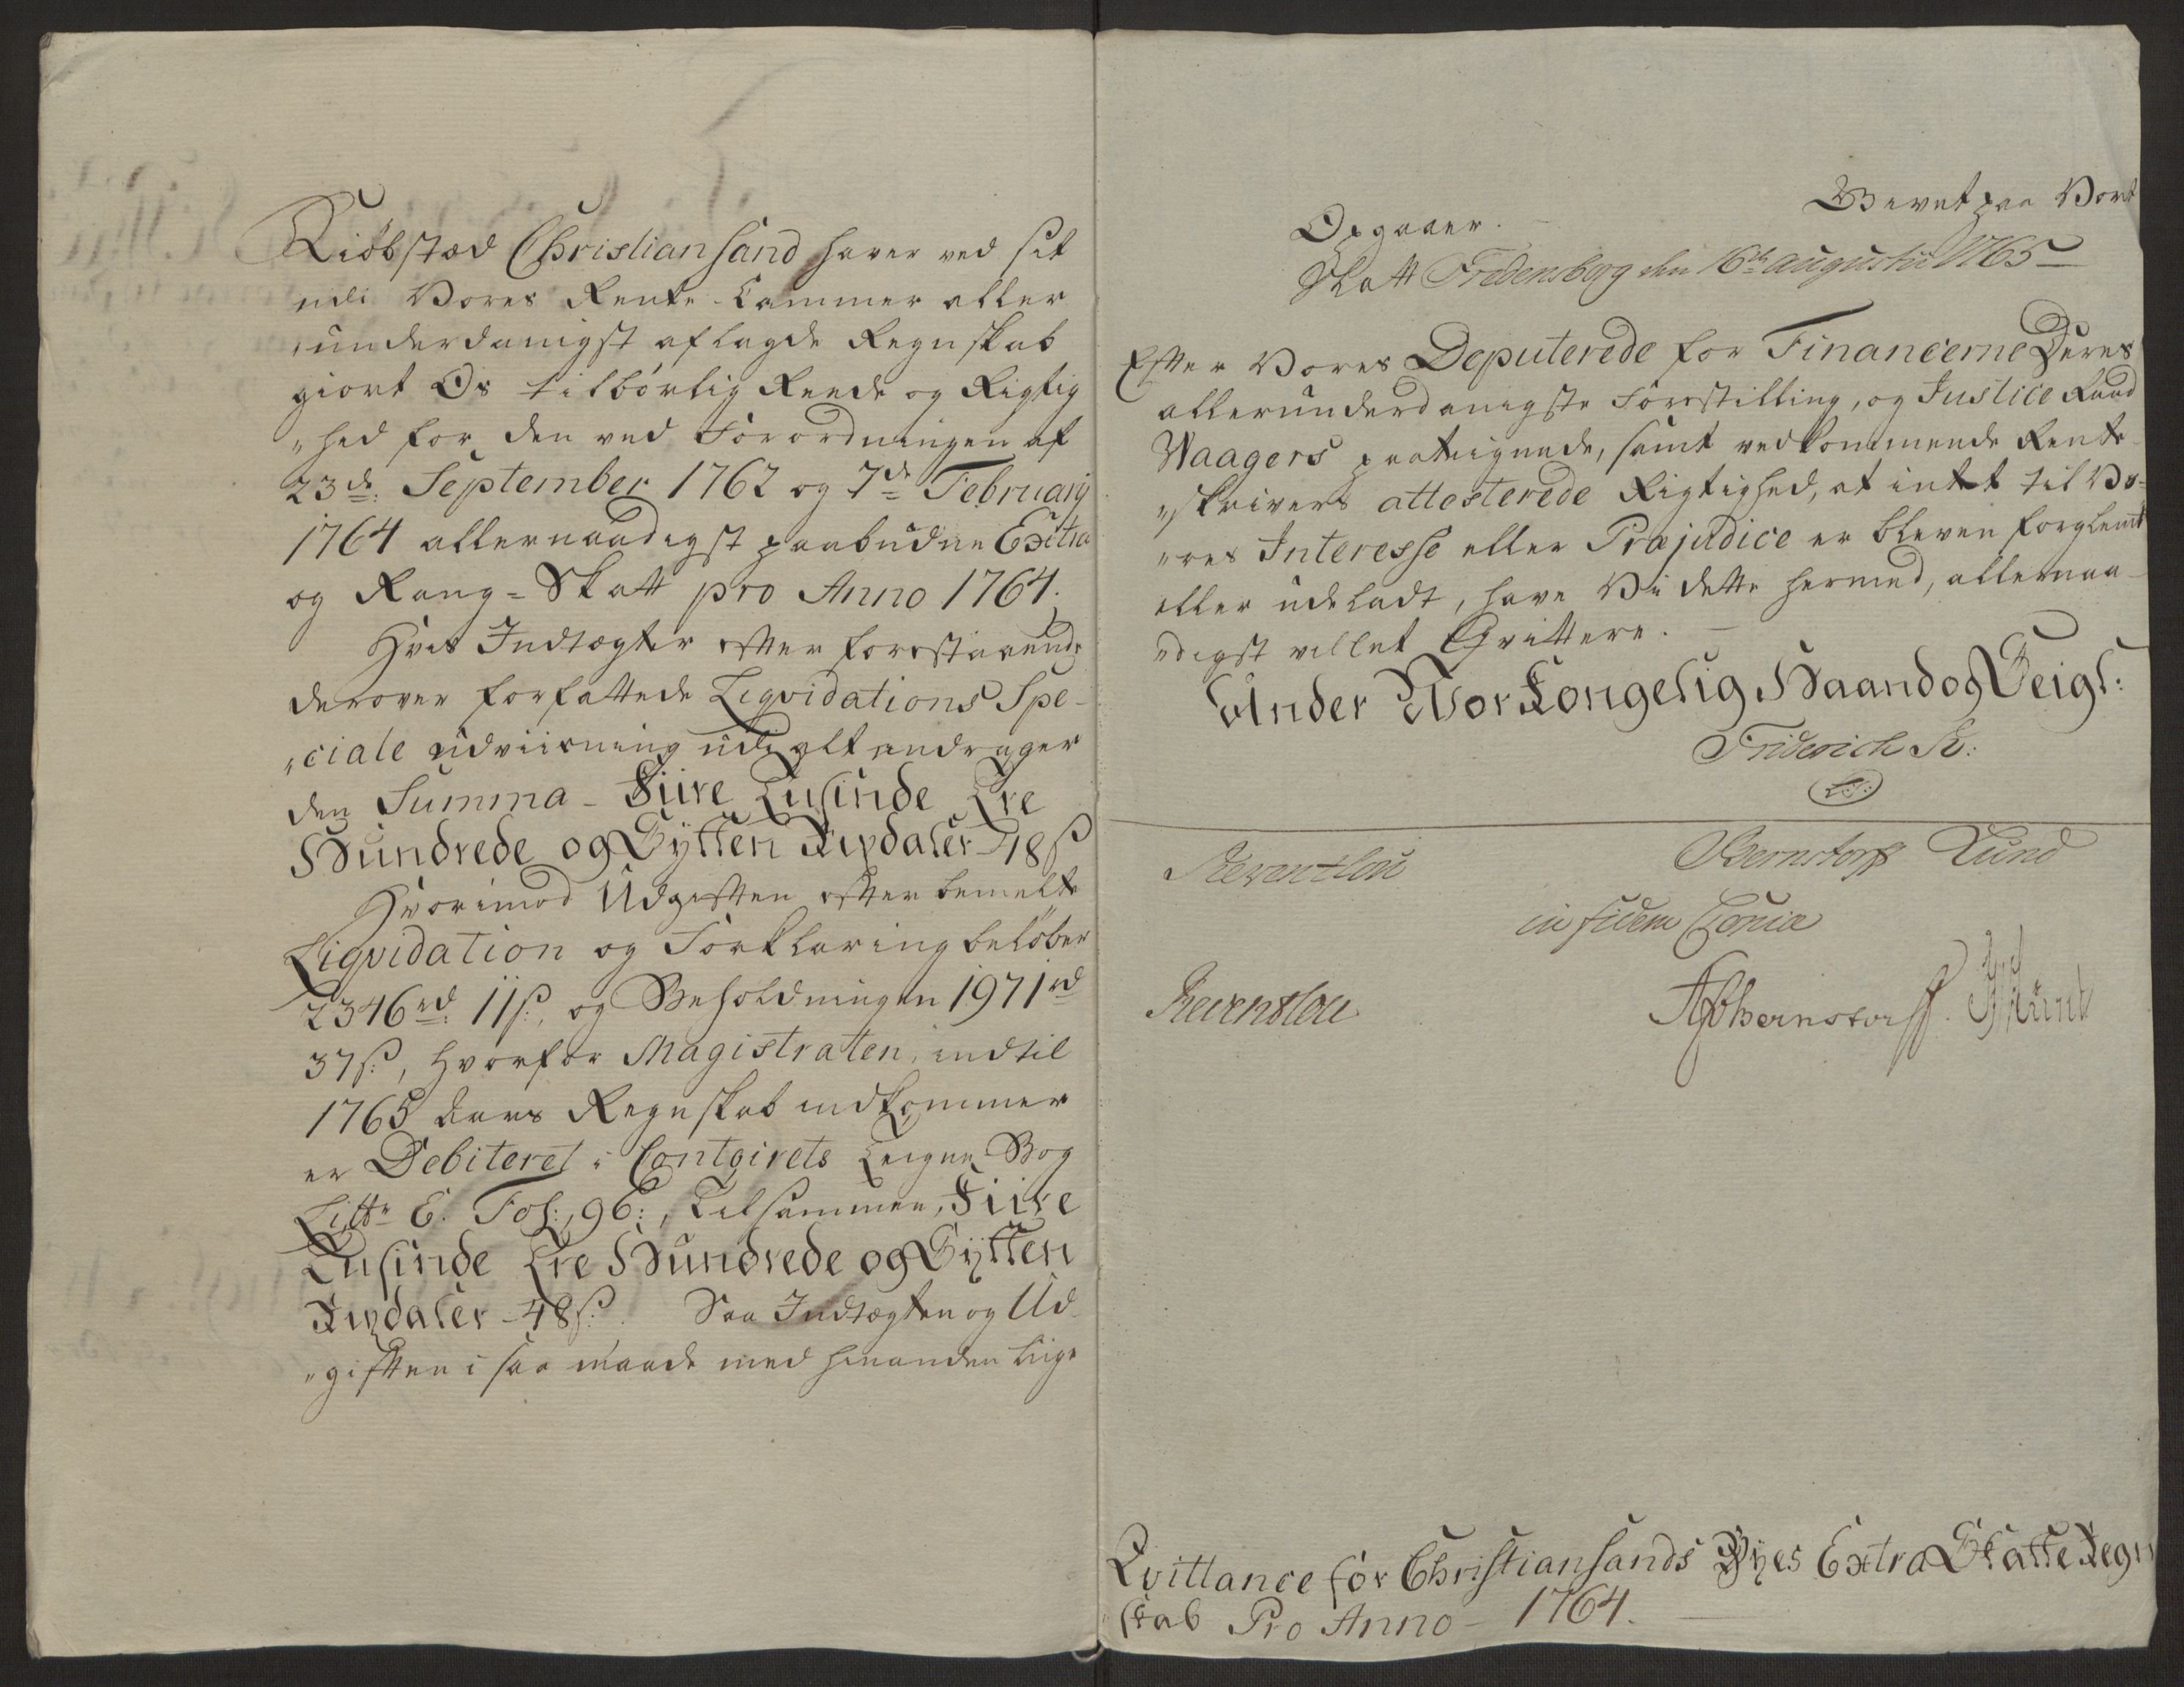 Kiöbstæd Christiansand haver ved sit
udi Vores Rente-Cammer aller
"underdanigst aflagde Regnskab
giort Os tilbörlig Reede og Rigtig
"hed for den ved Forordningen af
23de: September 1762 og 7de February
1764 allernaadigst paabudne Extra
og Rang-Skatt pro Anno 1764.
Hvis Indtægter efter forestaaende
derover forfattede Liqvidations Spe-
"ciale udviisning udi alt andrager
den Summa - Fiire Tusinde Tre
Hundrede og Sÿtten Rixdaler 48 ß
Hvorimod Udgiften efter bemelte
Liqvidation og Forklaring belöber
2346 rd: 11 ß:, og Beholdningen 1971 rd
37 ß:, hvorfor Magistraten, indtil
1765 Aars Regnskab indkommer
er Debiteret i Contoirets Teigne Bog
Litr: E. Fol: 96:, Tilsammen, Fiire
Tusinde Tre Hundrede og Sÿtten
Rixdaler 48 ß: Saa Indtægten og Ud-
"giften i saa maade med hinanden liige
Opgaaer. Givet paa Vort
Slott Fredensborg den 16de augustii 1765
Efter Vores Deputerede for Financerne Deres
allerunderdanigste Forestilling, og Justice Raad
Waagers paategnede, samt vedkommende Rente-
"skrivers attesterede Rigtighed, at intet til Vo-
"res Interesse eller Præjudice er bleven forglemt
eller udeladt, have Vi dette hermed, allernaa-
"digst villet Qvittere.
Under Vor Kongelig Haand og Seigl:
Friderich R:
L.S.
Reventlou Bernstorff Lund
in fidem Copiæ
Reventlou Bernstorff.
Qvittance for Christiansands Byes Extra Skatte Regn
"skab Pro Anno - 1764.